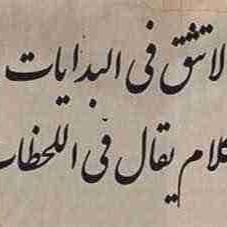 لا تثق في البدايات
كلام يقال في اللحظات